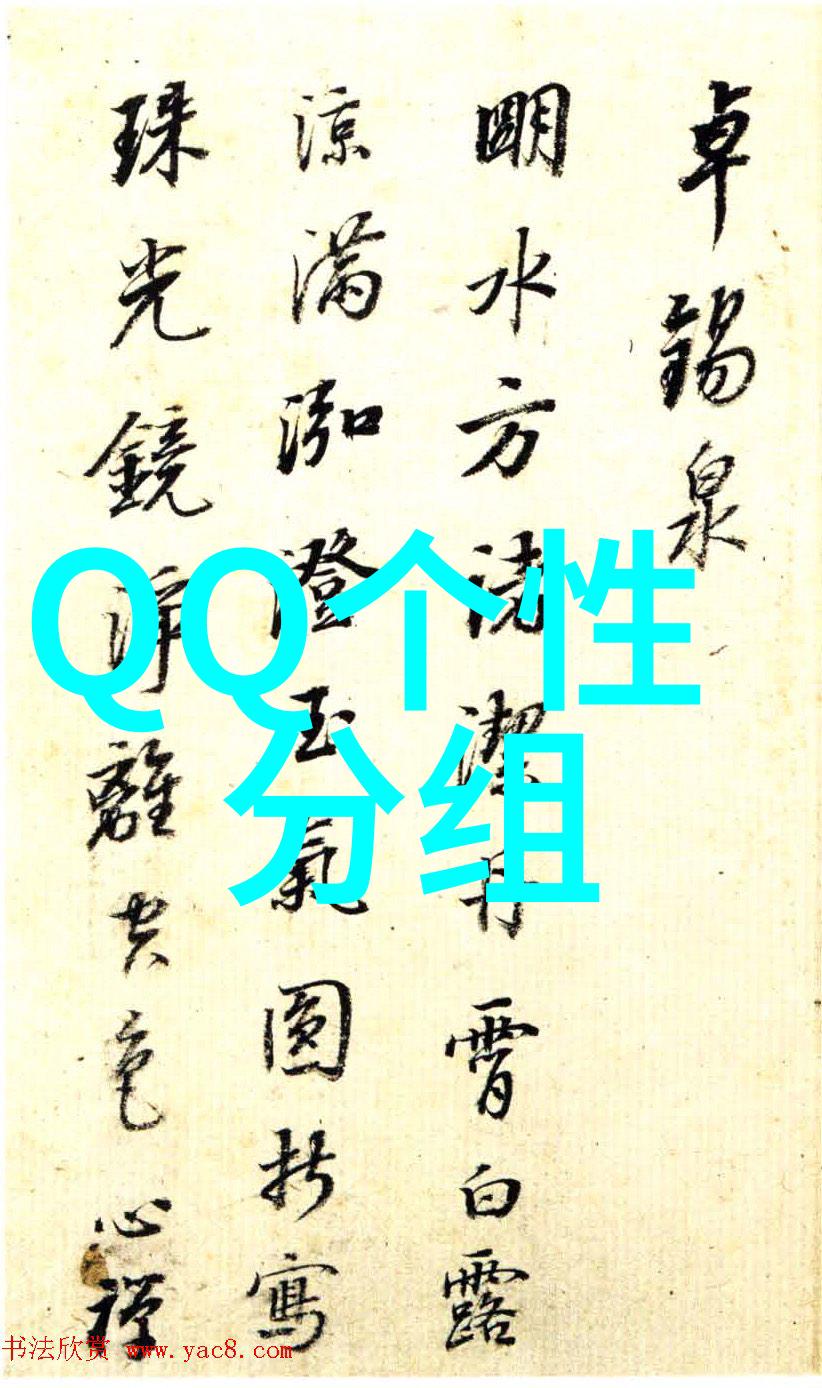 卓錫泉
明水方諸潔丹霄白露
涼滿泓澄玉氣圓折寫
珠光鏡淨離空色心禪
QQ个性
分组
书法欣赏 www.yac8.com